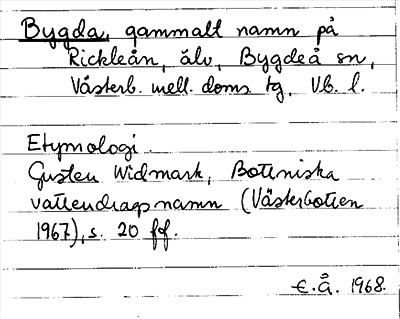 Bygda, gammalt namn på
Rickleån, älv, Bygdeå sn,
Västerb. mell. doms tg, Vb. l.
Etymologi.
Gusten Widmark, Botniska
vattendragsnamn (Västerbotten
1967), s. 20 ff.
E.Å. 1968.